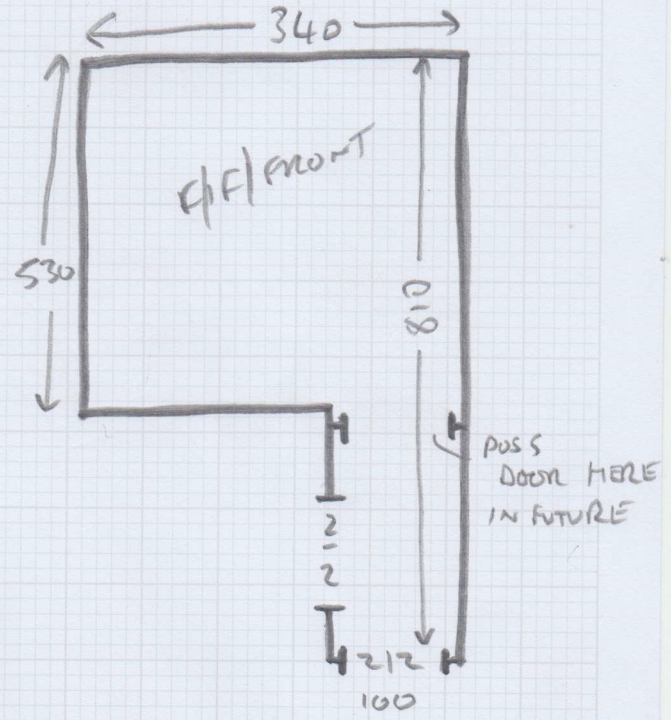 340
F/F/FRONT
530
810
POSS
DOOR HERE
IN FUTURE
2
2
212
100